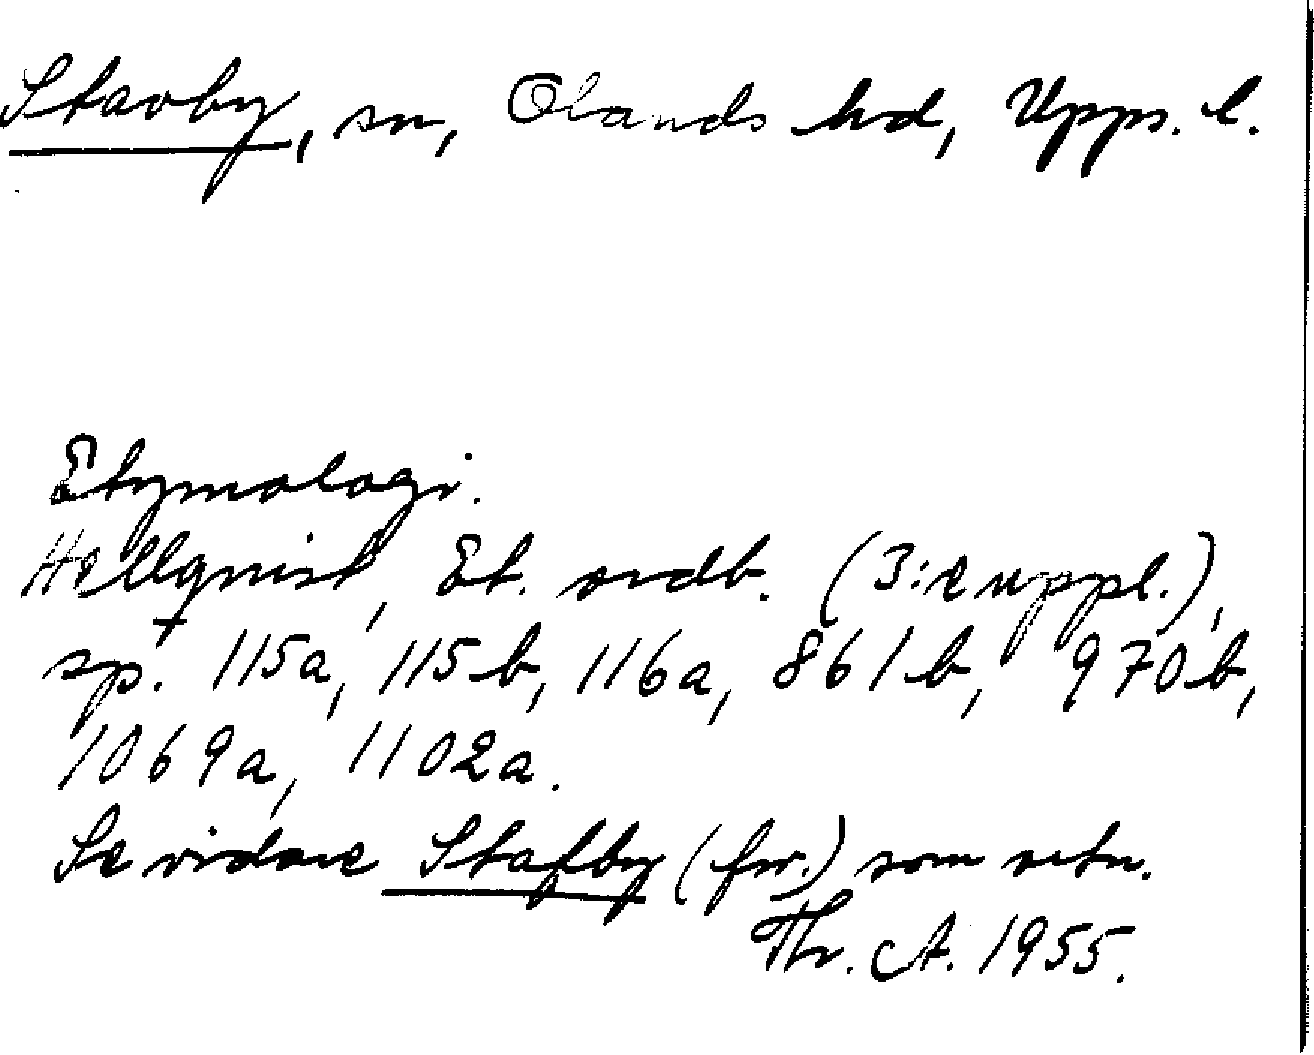 Stavby, sn, Olands hd, Upps. l.
Etymologi.
Hellqvist, Et. ordb. (3:e uppl.),
sp. 115a, 115b, 116a, 861b, 970b,
1069a, 1102a.
Se vidare Stafby (fr.) som ortn.
Thr. A. 1955.